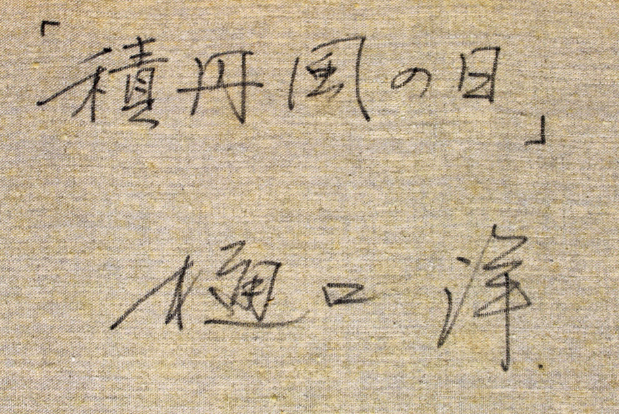 「積丹風の日」
樋口 洋